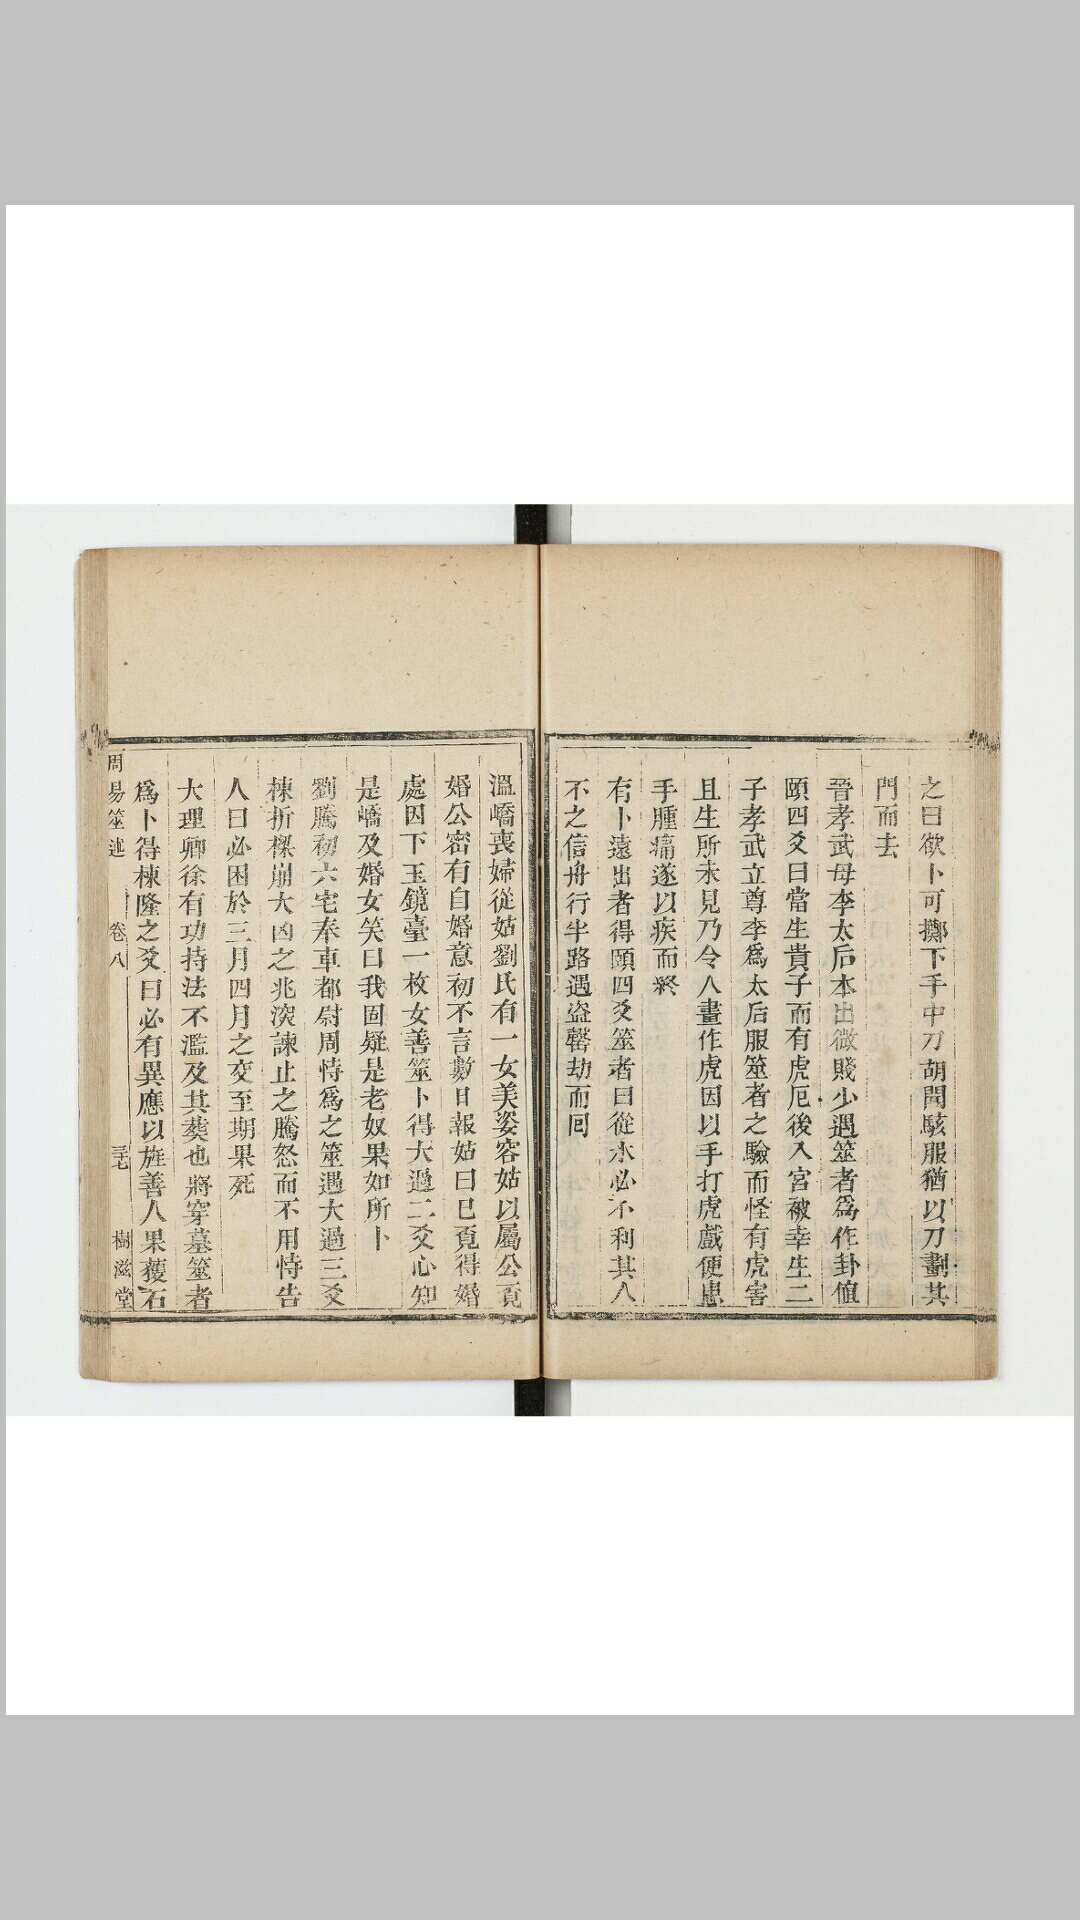 之曰欲卜可擲下手中刀胡聞駭服猶以刀劃其
門而去
晉孝武母李太后本出微賤少遇筮者爲作卦值
頤四爻曰當生貴子而有虎厄後入宮被幸生二
子孝武立尊李爲太后服筮者之驗而怪有虎害
且生所未見乃令人畫作虎因以手打虎戲便患
手腫痛遂以疾而終
有卜遠出者得頤四爻筮者曰從水必不利其人
不之信舟行半路遇盜罄劫而囘
溫嶠喪婦從姑劉氏有一女美姿容姑以屬公覔
婚公密有自婚意初不言數日報姑曰已覔得婚
處因下玉鏡臺一枚女善筮卜得大過二爻心知
是嶠及婚女笑曰我固疑是老奴果如所卜
劉騰初六宅奉車都尉周恃爲之筮遇大過三爻
棟折榱崩大凶之兆深諫止之騰怒而不用恃告
人曰必困於三月四月之交至期果死
大理卿徐有功持法不濫及其葬也將穿墓筮者
爲卜得棟隆之爻曰必有異應以旌善人果獲石
周易筮述 卷八 三七 樹滋堂